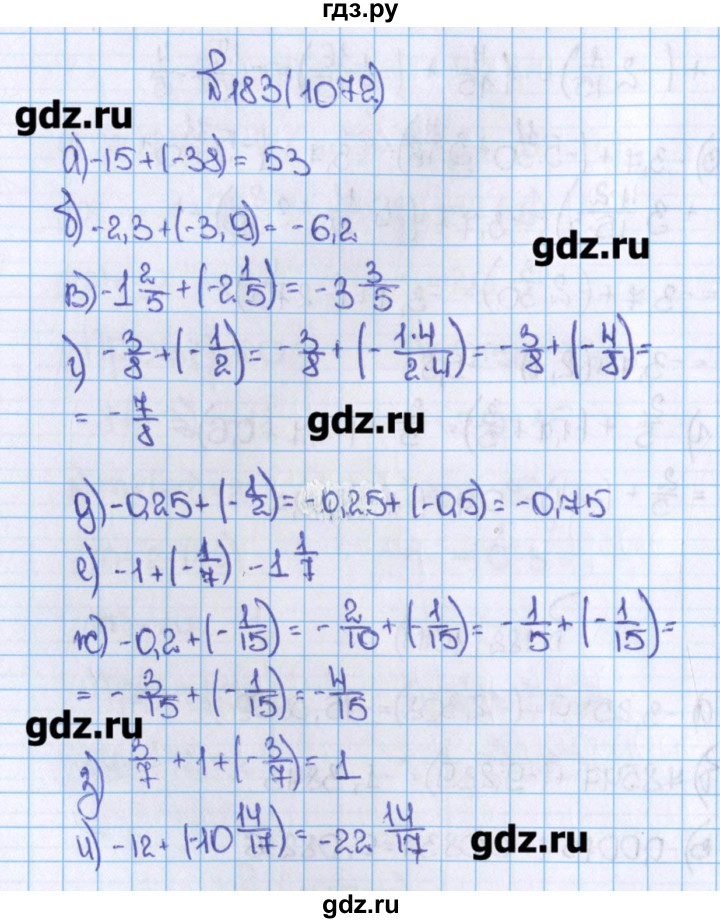 гдз.ру
№183(1072)
gdz.ru
а) -15 + (-38) = 53
б) -2,3 + (-3,9) = -6,2
gdz.ru
в) -1 2/5 + (-2 1/5) = -3 3/5
г) -3/8 + (-1/2) = -3/8 + (-1·4/2·4) = -3/8 + (-4/8) =
= -7/8
gdz.ru
д) -0,25 + (-1/2) = 0,25 + (-0,5) = -0,75
е) -1 + (-1/7) -1 1/7
ж) -0,2 + (-1/15) = -2/10 + (-1/15) = -1/5 + (-1/15) =
= -3/15 + (-1/15) = -4/15
gdz.ru
з) 3/7 + 1 + (-3/7) = 1
и) -12 + (-10 14/17) = -22 14/17
gdz.ru